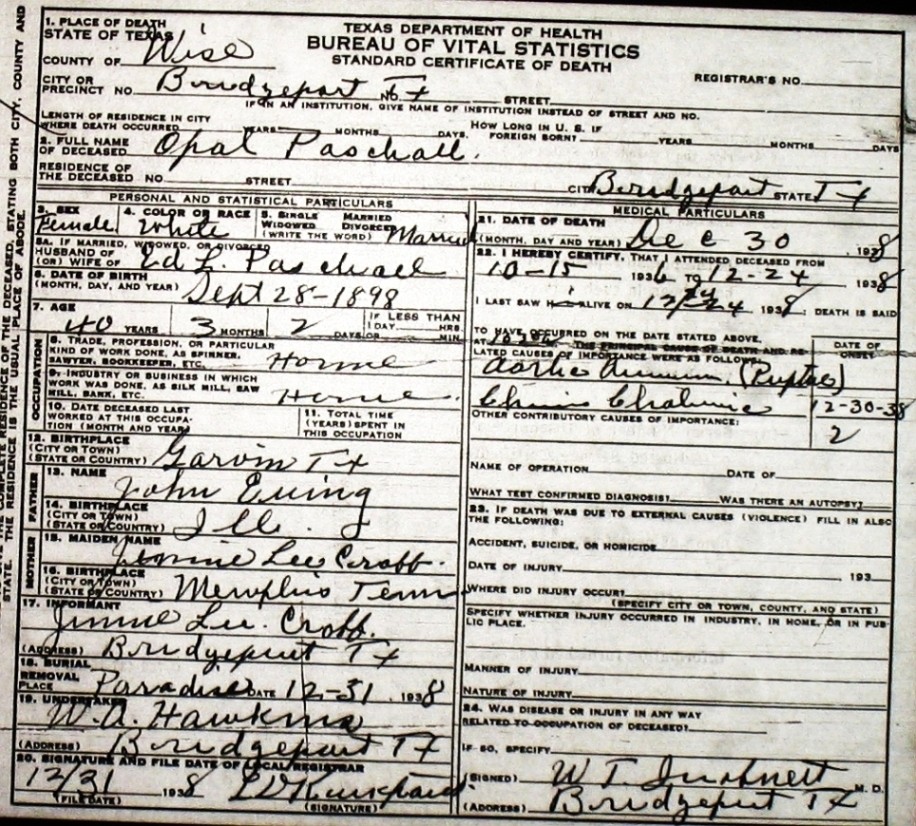 TEXAS DEPARTMENT OF HEALTH
BUREAU OF VITAL STATISTICS
STANDARD CERTIFICATE OF DEATH
1. PLACE OF DEATH
STATE OF TEXAS
COUNTY OF Wise
REGISTRAR'S NO.
CITY OR PRECINCT NO Bridgeport Tx NO. STREET
IF IN AN INSTITUTION, GIVE NAME OF INSTITUTION INSTEAD OF STREET AND NO.
LENGTH OF RESIDENCE IN CITY WHERE DEATH OCCURRED YEARS MONTHS DAYS. HOW LONG IN U. S. IF FOREIGN BORN? YEARS MONTHS DAYS
2. FULL NAME OF DECEASED Opal Paschall.
RESIDENCE OF THE DECEASED NO. STREET CITY Bridgeport STATE Tx
PERSONAL AND STATISTICAL PARTICULARS
3. SEX Female
4. COLOR OR RACE White
5. SINGLE MARRIED WIDOWED DIVORCED (WRITE THE WORD) Married
5A. IF MARRIED, WIDOWED, OR DIVORCED
HUSBAND OF (OR) WIFE OF Ed L. Paschall
6. DATE OF BIRTH (MONTH, DAY, AND YEAR) Sept 28-1898
7. AGE 40 YEARS 3 MONTHS 2 DAYS OR IF LESS THAN 1 DAY HRS. MIN.
OCCUPATION
8. TRADE, PROFESSION, OR PARTICULAR KIND OF WORK DONE, AS SPINNER, SAWYER, BOOKKEEPER, ETC. Home
9. INDUSTRY OR BUSINESS IN WHICH WORK WAS DONE, AS SILK MILL, SAW MILL, BANK, ETC. Home
10. DATE DECEASED LAST WORKED AT THIS OCCUPATION (MONTH AND YEAR)
11. TOTAL TIME (YEARS) SPENT IN THIS OCCUPATION
12. BIRTHPLACE (CITY OR TOWN) (STATE OR COUNTRY) Garvin Tx
FATHER
13. NAME John Ewing
14. BIRTHPLACE (CITY OR TOWN) (STATE OR COUNTRY) Ill.
MOTHER
15. MAIDEN NAME Jimmie Lee Crobb.
16. BIRTHPLACE (CITY OR TOWN) (STATE OR COUNTRY) Memphis Tenn
17. INFORMANT
Jimmie Lee. Crobb.
(ADDRESS) Bridgeport Tx
18. BURIAL REMOVAL PLACE Paradise DATE 12-31 1938
19. UNDERTAKER
W. A. Hawkins
(ADDRESS) Bridgeport Tx
20. SIGNATURE AND FILE DATE OF LOCAL REGISTRAR
12/31 1938
(FILE DATE) (SIGNATURE)
MEDICAL PARTICULARS
21. DATE OF DEATH (MONTH, DAY AND YEAR) Dec 30 1938
22. I HEREBY CERTIFY, THAT I ATTENDED DECEASED FROM
10-15 1936 TO 12-24 1938
I LAST SAW ALIVE ON 12/24 1938; DEATH IS SAID
TO HAVE OCCURRED ON THE DATE STATED ABOVE,
AT THE PRINCIPAL CAUSE OF DEATH AND RELATED CAUSES OF IMPORTANCE WERE AS FOLLOWS:
DATE OF ONSET
Aortic
12-30-38
OTHER CONTRIBUTORY CAUSES OF IMPORTANCE:
2
NAME OF OPERATION DATE OF
WHAT TEST CONFIRMED DIAGNOSIS? WAS THERE AN AUTOPSY?
23. IF DEATH WAS DUE TO EXTERNAL CAUSES (VIOLENCE) FILL IN ALSO THE FOLLOWING:
ACCIDENT, SUICIDE, OR HOMICIDE
DATE OF INJURY 193
WHERE DID INJURY OCCUR?
(SPECIFY CITY OR TOWN, COUNTY, AND STATE)
SPECIFY WHETHER INJURY OCCURRED IN INDUSTRY, IN HOME, OR IN PUBLIC PLACE.
MANNER OF INJURY
NATURE OF INJURY
24. WAS DISEASE OR INJURY IN ANY WAY RELATED TO OCCUPATION OF DECEASED?
IF SO, SPECIFY
(SIGNED) W. T. M. D.
(ADDRESS) Bridgeport Tx